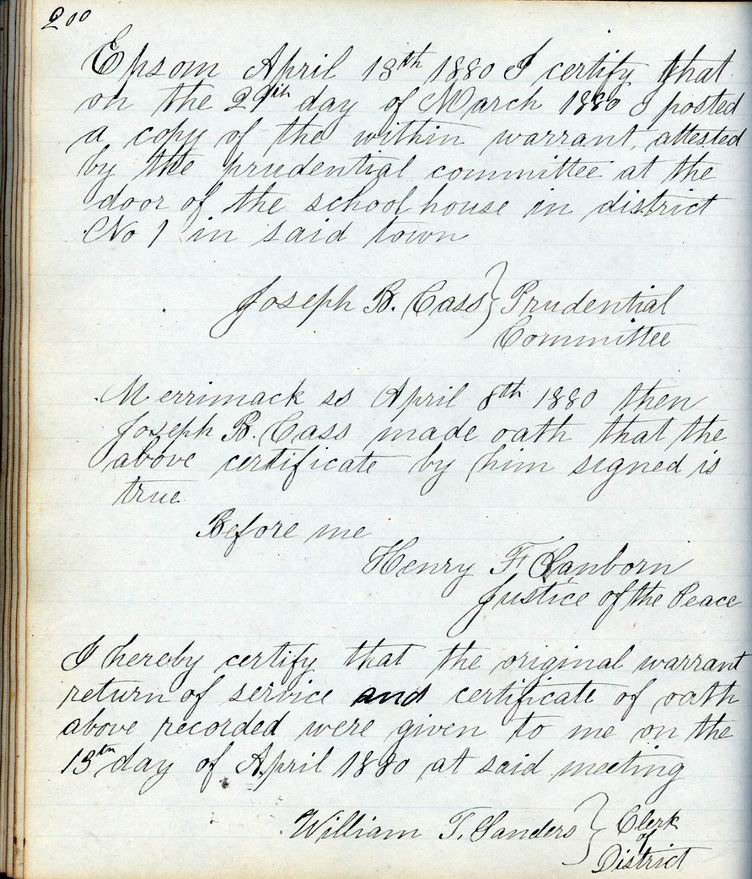 200
Epsom April 13th 1880 I certify that
on the 29th day of March 1880 I posted
a copy of the within warrant, attested
by the prudential committee at the
door of the school house in district
No 1 in said town
Joseph B. Cass } Prudential
Committee
Merrimack ss April 8th 1880 then
Joseph B. Cass made oath that the
above certificate by him signed is
true
Before me
Henry F Sanborn
Justice of the Peace
I hereby certify that the original warrant
return of service and certificate of oath
above recorded were given to me on the
13th day of April 1880 at said meeting
William T. Sanders } Clerk
of
District